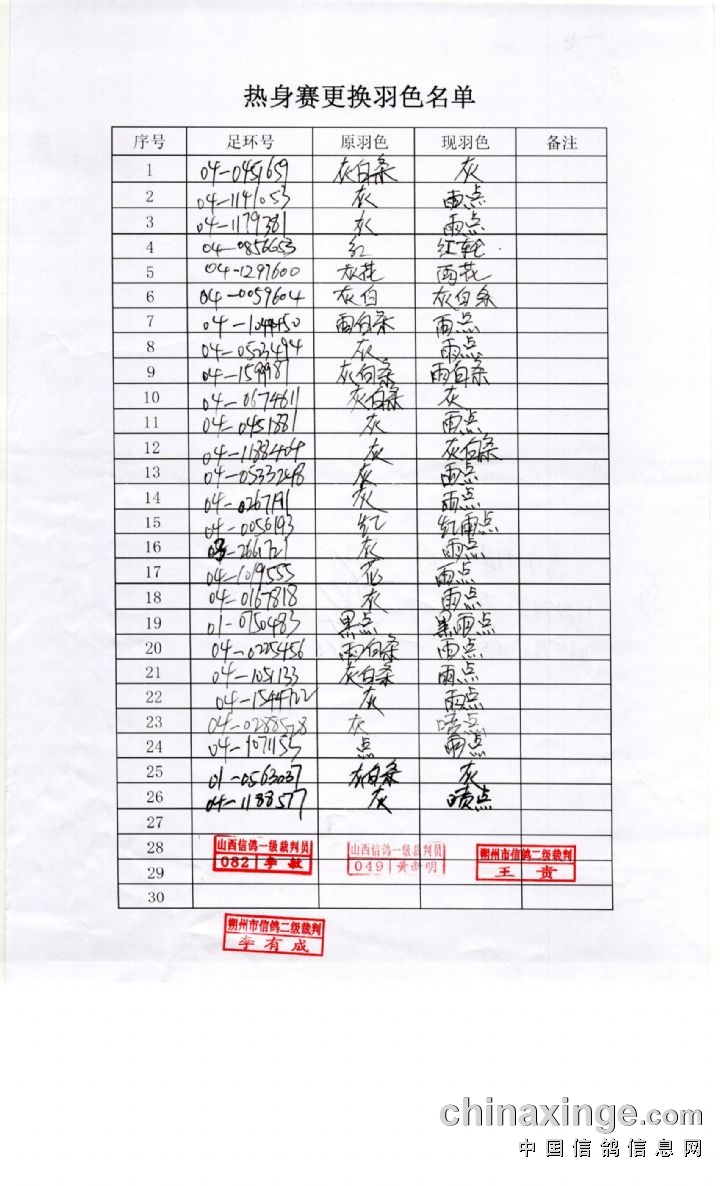 热身赛更换羽色名单
序号 足环号 原羽色 现羽色 备注
1 04-0451659 灰白条 灰
2 04-1141053 灰 雨点
3 04-1179381 灰 雨点
4 04-0856653 红 红轮
5 04-1297600 灰花 雨花
6 04-0059604 灰白 灰白条
7 雨白条 雨点
8 04-0523494 灰 雨点
9 灰白条 雨白条
10 04-0674611 灰白条 灰
11 04-0451881 灰 雨点
12 04-1188404 灰 灰白条
13 04-0533248 灰 雨点
14 04-0267191 灰 雨点
15 04-0056193 红 红雨点
16 灰 雨点
17 04-1019555 花 雨点
18 04-0167818 灰 雨点
19 01-0750483 黑点 黑雨点
20 04-0225456 雨白条 雨点
21 04-1051133 灰白条 雨点
22 04-1544722 灰 雨点
23 04-0288528 灰 点
24 04-1071153 点 雨点
25 01-0563037 灰白条 灰
26 04-1188577 灰 点
27
28
29
30
山西信鸽一级裁判员
082 李敏
山西信鸽一级裁判员
049 黄 明
朔州市信鸽二级裁判
王 贵
朔州市信鸽二级裁判
李有成
chinaxinge.com
中国信鸽信息网